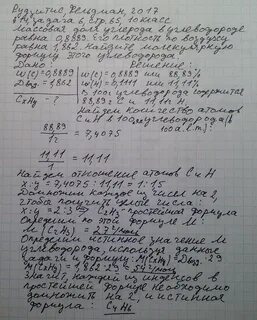 Рудзитис, Фельдман, 2017
§14, задача 6, стр. 65, 10 класс
Массовая доля углерода в углеводороде
равна 0,8889. Его плотность по воздуху
равна 1,862. Найдите молекулярную
формулу этого углеводорода.
Дано: Решение:
w(C)=0,8889 w(C)=0,8889 или 88,89%
Dвозд=1,862 w(H)=0,1111 или 11,11%
CxHy - ? В 100г углеводорода содержится
88,89г C и 11,11г H
Найдем количество атомов
C и H в 100г углеводорода
88,89/12 = 7,4075
11,11/1 = 11,11
Найдем отношение атомов C и H
x:y = 7,4075:11,11 = 1:1,5
Домножим каждое из чисел на 2,
чтобы получить целые числа:
x:y = 2:3 C2H3 - простейшая формула
Определим по этой формуле M:
M(C2H3) = 27 г/моль
Определим истинное значение M
углеводорода, используя данные
задачи и формулу: M(CxHy)=Dвозд·29
M(CxHy) = 1,862·29 = 54 г/моль
Значит, каждый из индексов в
простейшей формуле необходимо
домножить на 2, и истинная
формула: C4H6